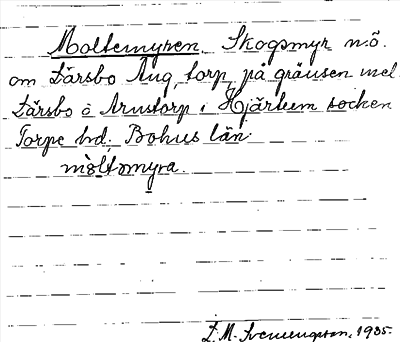 Moltemyren. Skogsmyr n.ö.
om Lärsbo Aug, torp, på gränsen mel.
Lärsbo o Arnstorp i Hjärtum socken
Torpe hd. Bohus län.
mòltəmỳra.
L. M. Svenungsson, 1935.